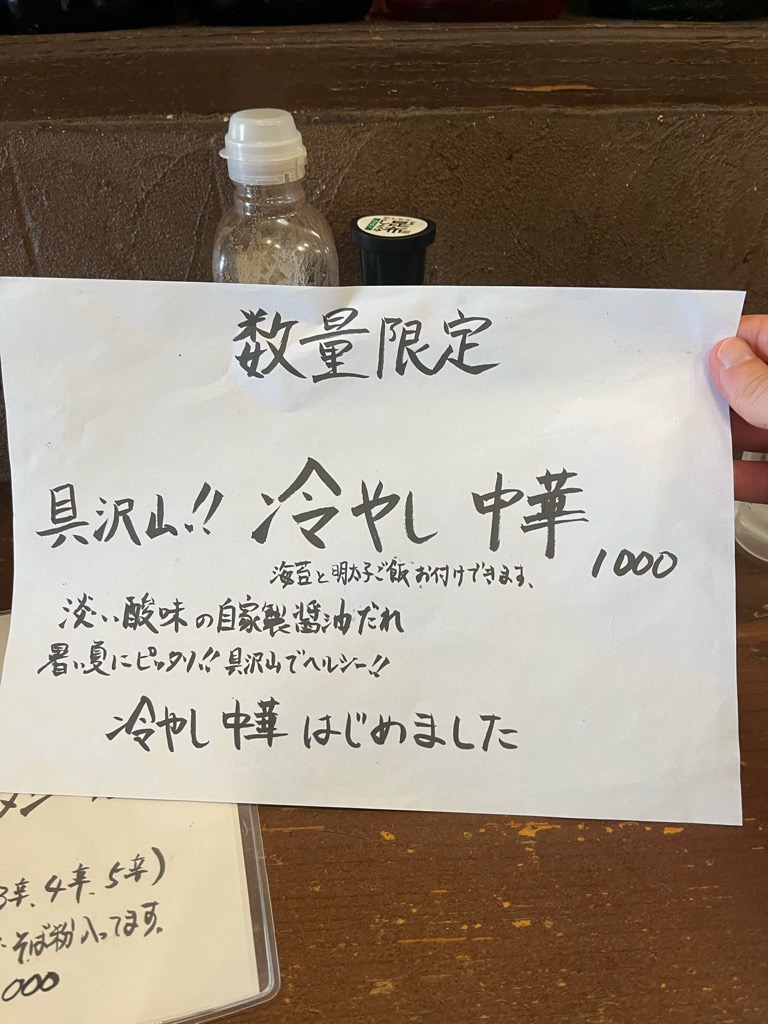 数量限定
具沢山!! 冷やし中華
1000
海苔と明太子ご飯お付けできます。
淡い酸味の自家製醤油だれ
暑い夏にピッタリ!! 具沢山でヘルシー!!
冷やし中華はじめました
3辛、4辛、5辛)
そば粉入ってます。
000